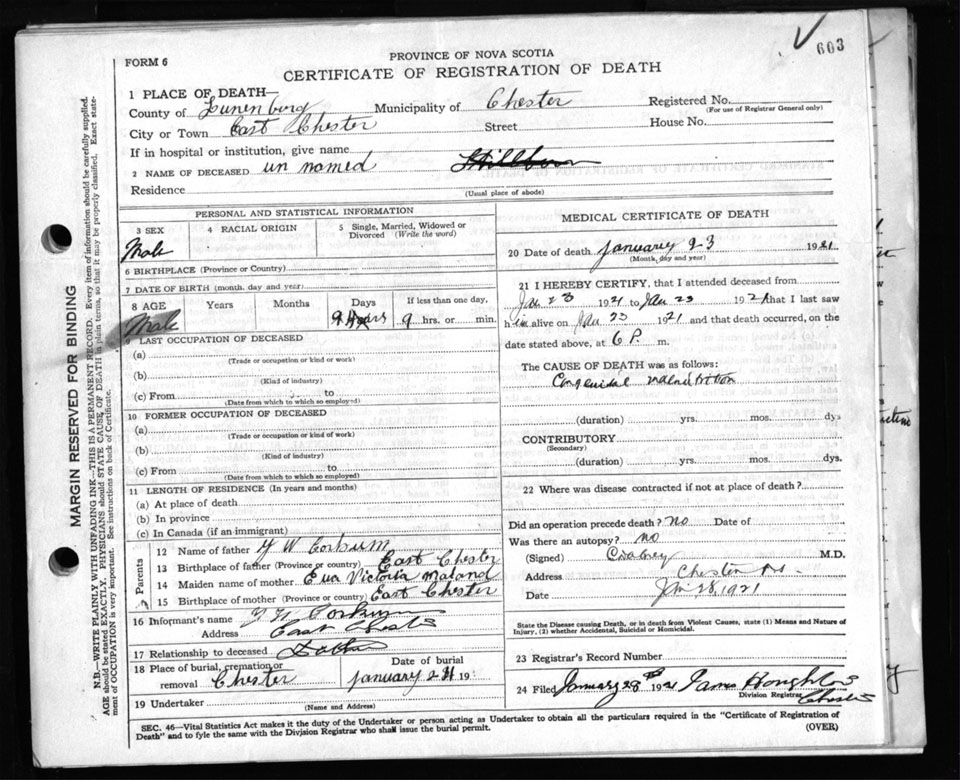 603
FORM 6
PROVINCE OF NOVA SCOTIA
CERTIFICATE OF REGISTRATION OF DEATH
1 PLACE OF DEATH—
County of Lunenburg Municipality of Chester Registered No.
(For use of Registrar General only)
City or Town East Chester Street House No.
If in hospital or institution, give name
2 NAME OF DECEASED un named Stillborn
Residence
(Usual place of abode)
PERSONAL AND STATISTICAL INFORMATION
3 SEX 4 RACIAL ORIGIN 5 Single, Married, Widowed or Divorced (Write the word)
Male
6 BIRTHPLACE (Province or Country)
7 DATE OF BIRTH (month, day and year)
8 AGE Years Months Days If less than one day,
Male 9 hrs. or min.
9 LAST OCCUPATION OF DECEASED
(a)
(Trade or occupation or kind of work)
(b)
(Kind of industry)
(c) From to
(Date from which to which so employed)
10 FORMER OCCUPATION OF DECEASED
(a)
(Trade or occupation or kind of work)
(b)
(Kind of industry)
(c) From to
(Date from which to which so employed)
11 LENGTH OF RESIDENCE (In years and months)
(a) At place of death
(b) In province
(c) In Canada (if an immigrant)
Parents
12 Name of father Y W Corkum
13 Birthplace of father (Province or country) East Chester
14 Maiden name of mother Eva Victoria
15 Birthplace of mother (Province or country) East Chester
16 Informant's name Y W Corkum
Address East Chester
17 Relationship to deceased Father
18 Place of burial, cremation or removal Chester Date of burial January 24 19
19 Undertaker
(Name and Address)
MEDICAL CERTIFICATE OF DEATH
20 Date of death January 23 1921
(Month, day and year)
21 I HEREBY CERTIFY, that I attended deceased from
Jan 23 1921 to Jan 23 1921 that I last saw
him alive on Jan 23 1921 and that death occurred, on the
date stated above, at 6 P. m.
The CAUSE OF DEATH was as follows:
Congenital malnutrition
(duration) yrs. mos. dys
CONTRIBUTORY
(Secondary)
(duration) yrs. mos. dys.
22 Where was disease contracted if not at place of death?
Did an operation precede death? No Date of
Was there an autopsy? no
(Signed) M.D.
Address Chester NS
Date Jan 28, 1921
State the Disease causing Death, or in death from Violent Causes, state (1) Means and Nature of Injury, (2) whether Accidental, Suicidal or Homicidal.
23 Registrar's Record Number
24 Filed January 28th 1921 James Houghton
Division Registrar
Chester
SEC. 46—Vital Statistics Act makes it the duty of the Undertaker or person acting as Undertaker to obtain all the particulars required in the "Certificate of Registration of
Death" and to fyle the same with the Division Registrar who shall issue the burial permit. (OVER)
MARGIN RESERVED FOR BINDING
N.B.—WRITE PLAINLY WITH UNFADING INK—THIS IS A PERMANENT RECORD. Every item of information should be carefully supplied.
AGE should be stated EXACTLY. PHYSICIANS should STATE CAUSE OF DEATH in plain terms, so that it may be properly classified. Exact statement
of OCCUPATION is very important. See instructions on back of Certificate.